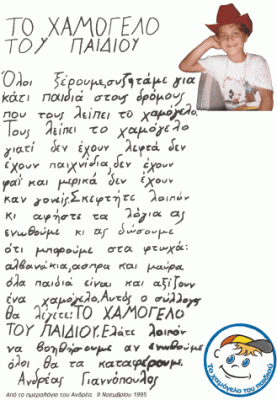 ΤΟ ΧΑΜΟΓΕΛΟ
ΤΟΥ ΠΑΙΔΙΟΥ
Όλοι ξέρουμε,συζητάμε για
κάτι παιδιά στους δρόμους
που τους λείπει το χαμόγελο.
Τους λείπει το χαμόγελο
γιατί δεν έχουν λεφτά δεν
έχουν παιχνίδια,δεν έχουν
φαϊ και μερικά δεν έχουν
καν γονείς.Σκεφτήτε λοιπόν
κι αφήστε τα λόγια ας
ενωθούμε κι ας δώσουμε
ότι μπορούμε στα φτωχά:
αλβανάκια,ασπρα και μαύρα
όλα παιδιά είναι και αξίζουν
ένα χαμόγελο.Αυτός ο σύλλογος
θα λέγετε:ΤΟ ΧΑΜΟΓΕΛΟ
ΤΟΥ ΠΑΙΔΙΟΥ.Ελάτε λοιπόν
να βοηθήσουμε αν ενωθούμε
όλοι θα τα καταφέρουμε.
Ανδρέας Γιαννόπουλος
Από το ημερολόγιο του Ανδρέα, 9 Νοεμβρίου 1995
Το χαμόγελο του παιδιού